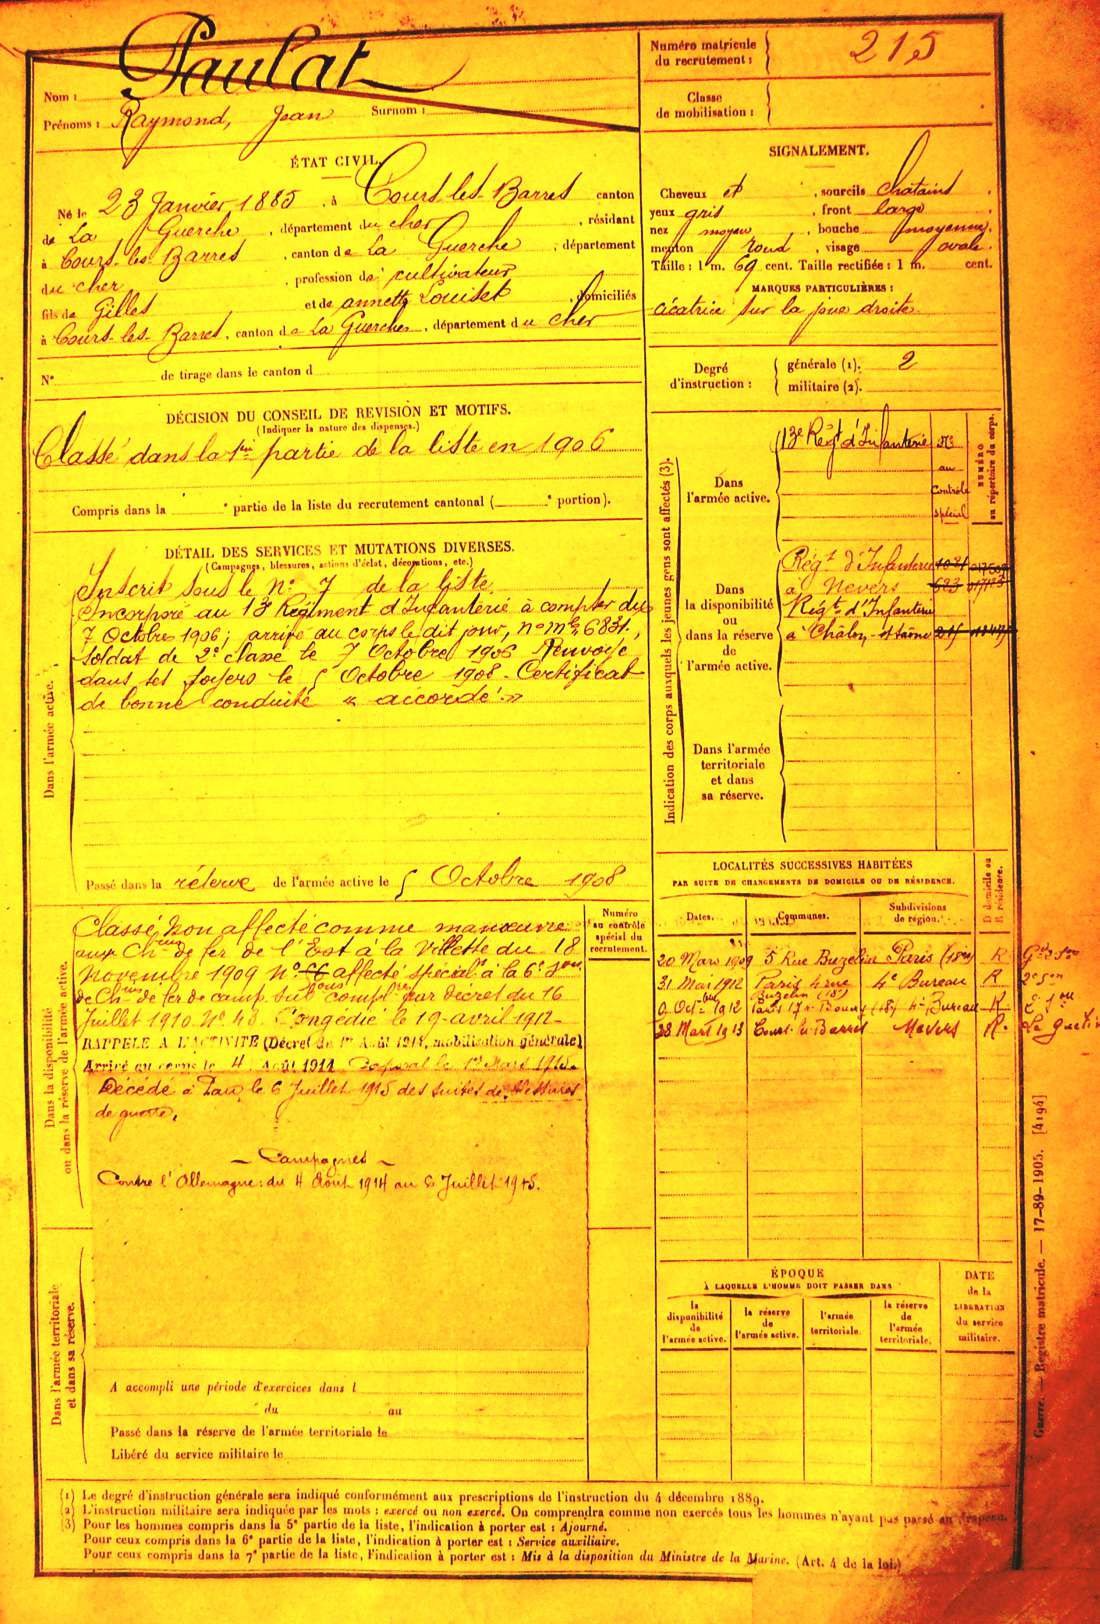 Paulat
Nom :
Prénoms : Raymond, Jean Surnom :
Numéro matricule du recrutement : 215
Classe de mobilisation :
ÉTAT CIVIL.
Né le 23 Janvier 1885, à Cours-les-Barres canton
de La Guerche, département du cher, résidant
à Cours-les-Barres, canton de La Guerche, département
du cher, profession de cultivateur
fils de Gilles et de annette Louiset, domiciliés
à Cours-les-Barres, canton de La Guerche, département du cher
N° de tirage dans le canton d
SIGNALEMENT.
Cheveux et, sourcils chatains.
yeux gris, front large
nez moyen, bouche moyenne.
menton rond, visage ovale.
Taille : 1 m. 69 cent. Taille rectifiée : 1 m. cent.
MARQUES PARTICULIÈRES :
cicatrice sur la joue droite
Degré d'instruction : générale (1). 2
militaire (2).
DÉCISION DU CONSEIL DE REVISION ET MOTIFS.
(Indiquer la nature des dispenses.)
Classé dans la 1ère partie de la liste en 1906
Compris dans la e partie de la liste du recrutement cantonal ( e portion).
DÉTAIL DES SERVICES ET MUTATIONS DIVERSES.
(Campagnes, blessures, actions d'éclat, décorations, etc.)
Dans l'armée active.
Inscrit sous le N° 7 de la liste.
Incorporé au 13e Régiment d'Infanterie à compter du
7 Octobre 1906; arrivé au corps le dit jour, n° mle 6831,
soldat de 2e classe le 7 Octobre 1906 Renvoyé
dans ses foyers le 5 Octobre 1908 - Certificat
de bonne conduite « accordé »
Passé dans la réserve de l'armée active le 5 Octobre 1908
Indication des corps auxquels les jeunes gens sont affectés (3).
Dans l'armée active.
13e Régt d'Infanterie
N°
au
Contrôle
spécial
NUMÉRO au répertoire du corps.
Dans la disponibilité ou dans la réserve de l'armée active.
Régt d'Infanterie
à Nevers 623
Régt d'Infanterie
à Châlon s/ Saône 215
Dans l'armée territoriale et dans sa réserve.
Dans la disponibilité ou dans la réserve de l'armée active.
Classé Non affecté comme manœuvre
aux Chins de fer de l'Est à la Villette du 18
Novembre 1909 N° affecté spécialt à la 6e son
de Chins de fer de camp. subons complres par décret du 16
Juillet 1910 N° 48 Congédié le 19 avril 1912
RAPPELÉ A L'ACTIVITÉ (Décret du 1er Août 1914, mobilisation générale)
Arrivé au corps le 4 Août 1914 Caporal le 1er Mars 1915.
Décédé à Pau, le 6 Juillet 1915 des suites de blessures
de guerre.
Campagnes
Contre l'Allemagne : du 4 Août 1914 au 6 Juillet 1915.
Numéro au contrôle spécial du recrutement.
LOCALITÉS SUCCESSIVES HABITÉES
PAR SUITE DE CHANGEMENTS DE DOMICILE OU DE RÉSIDENCE.
Dates. Communes. Subdivisions de région. D domicile ou R résidence.
20 Mars 1909 5 Rue Buzelin Paris (18e) R
31 Mai 1912 Paris 4 rue Buzelin (18e) 4e Bureau R
9 Octbre 1912 Paris (18) 4e Bureau R
28 Mars 1913 Cours-les-Barres Nevers R.
ÉPOQUE
À LAQUELLE L'HOMME DOIT PASSER DANS
la disponibilité de l'armée active.
la réserve de l'armée active.
l'armée territoriale.
la réserve de l'armée territoriale.
DATE de la LIBÉRATION du service militaire.
Dans l'armée territoriale et dans sa réserve.
A accompli une période d'exercices dans l
du au
Passé dans la réserve de l'armée territoriale le
Libéré du service militaire le
Guerre. — Registre matricule. — 17-89-1905. [4194]
(1) Le degré d'instruction générale sera indiqué conformément aux prescriptions de l'instruction du 4 décembre 1889.
(2) L'instruction militaire sera indiquée par les mots : exercé ou non exercé. On comprendra comme non exercés tous les hommes n'ayant pas passé au drapeau.
(3) Pour les hommes compris dans la 5e partie de la liste, l'indication à porter est : Ajourné.
Pour ceux compris dans la 6e partie de la liste, l'indication à porter est : Service auxiliaire.
Pour ceux compris dans la 7e partie de la liste, l'indication à porter est : Mis à la disposition du Ministre de la Marine. (Art. 4 de la loi.)